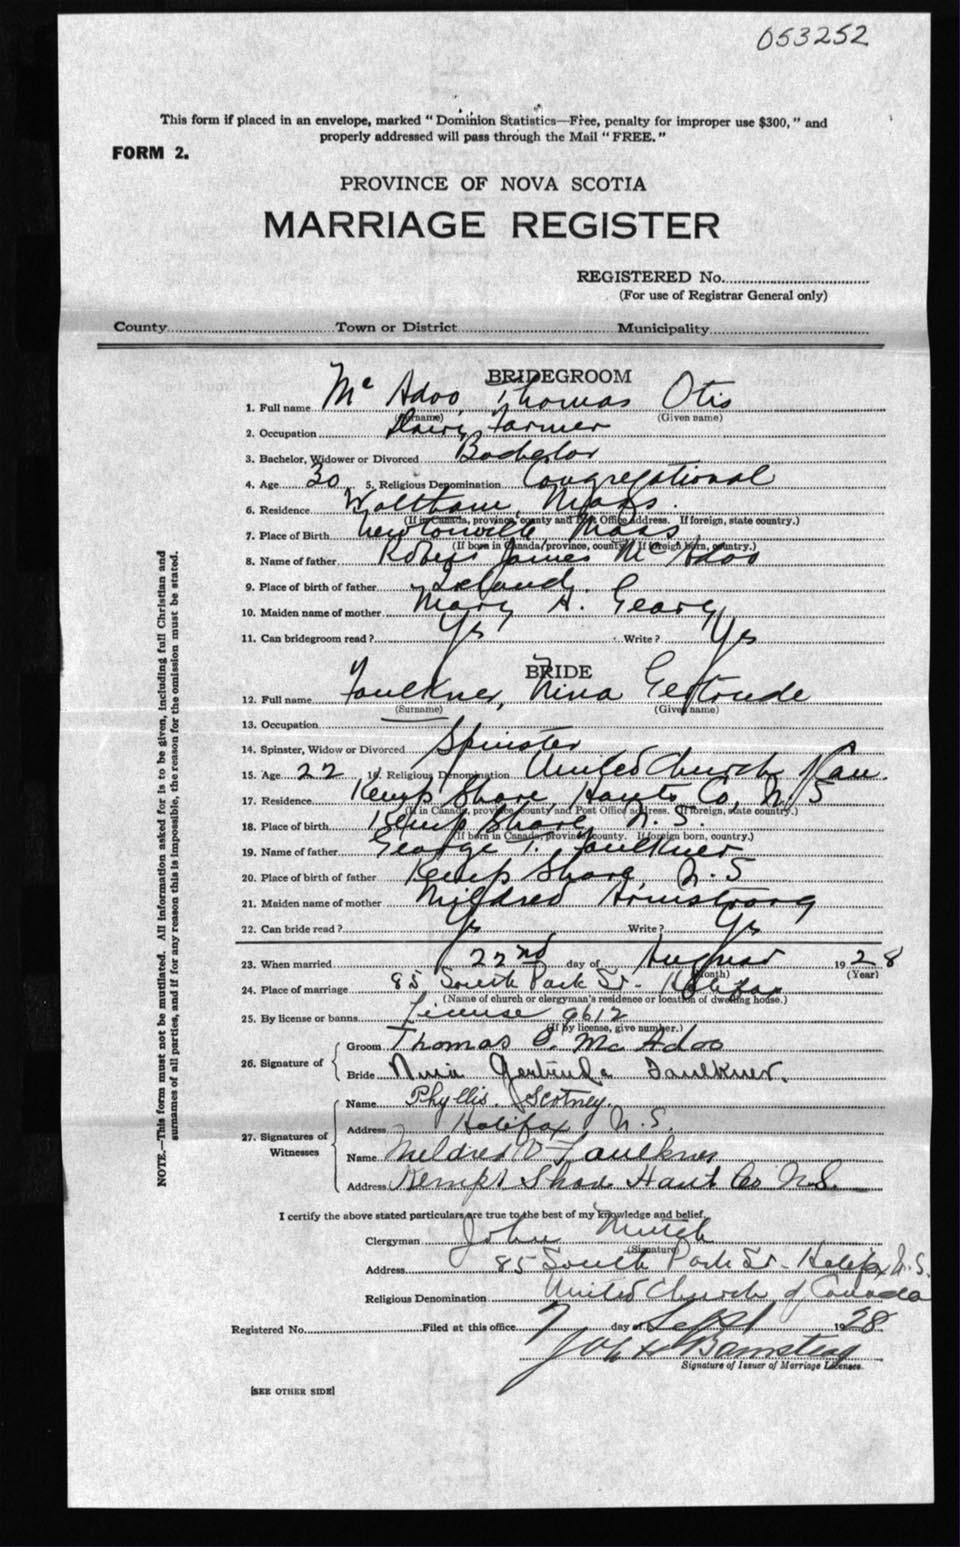 053252
This form if placed in an envelope, marked " Dominion Statistics—Free, penalty for improper use $300, " and
properly addressed will pass through the Mail " FREE. "
FORM 2.
PROVINCE OF NOVA SCOTIA
MARRIAGE REGISTER
REGISTERED No.
(For use of Registrar General only)
County Town or District Municipality
BRIDEGROOM
1. Full name Mc Adoo, Thomas Otis
(Surname) (Given name)
2. Occupation Dairy Farmer
3. Bachelor, Widower or Divorced Bachelor
4. Age 30 5. Religious Denomination Congregational
6. Residence Waltham, Mass.
(If in Canada, province, county and Post Office Address. If foreign, state country.)
7. Place of Birth Newtonville Mass
(If born in Canada, province, county. If foreign born, country.)
8. Name of father Robert James McAdoo
9. Place of birth of father Ireland.
10. Maiden name of mother Mary A. Geary
11. Can bridegroom read? Yes Write? Yes
BRIDE
12. Full name Faulkner, Nina Gertrude
(Surname) (Given name)
13. Occupation
14. Spinster, Widow or Divorced Spinster
15. Age 22 16. Religious Denomination United Church Can.
17. Residence Kemp Shore, Hants Co, N.S
(If in Canada, province, county and Post Office address. If foreign, state country.)
18. Place of birth Kemp Shore, N.S.
(If born in Canada, province, county. If foreign born, country.)
19. Name of father George T. Faulkner
20. Place of birth of father Kemp Shore, N.S
21. Maiden name of mother Mildred Armstrong
22. Can bride read? Yes Write? Yes
23. When married 22nd day of August 1928
(Month) (Year)
24. Place of marriage 85 South Park St. Halifax
(Name of church or clergyman's residence or location of dwelling house.)
25. By license or banns License 6612
(If by license, give number.)
26. Signature of
Groom Thomas O. McAdoo
Bride Nina Gertrude Faulkner.
27. Signatures of Witnesses
Name Phyllis Scotney.
Address Halifax N.S.
Name Mildred Faulkner
Address Kempt Shore Hant Co N.S.
I certify the above stated particulars are true to the best of my knowledge and belief.
Clergyman John Mutch
(Signature)
Address 85 South Park St. Halifax N.S.
Religious Denomination United Church of Canada
Registered No. Filed at this office 7 day of Sept 1928
Signature of Issuer of Marriage Licenses.
[SEE OTHER SIDE]
NOTE.—This form must not be mutilated. All information asked for is to be given, including full Christian and
surnames of all parties, and if for any reason this is impossible, the reason for the omission must be stated.